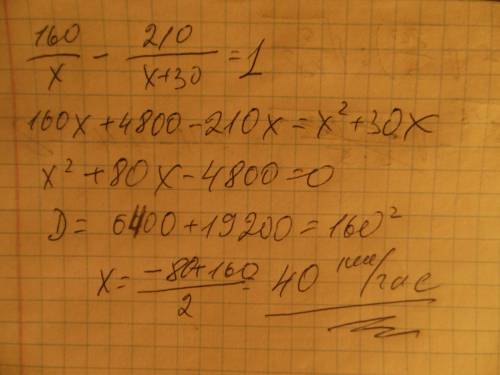 160/x - 210/(x+30) = 1
160x+4800-210x=x²+30x
x²+80x-4800=0
D= 6400+19200=160²
x= (-80+160)/2 = 40 км/час